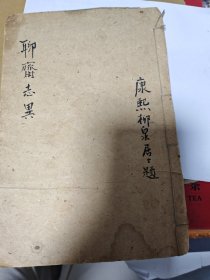 聊齋志異
康熙柳泉居士題
TEA